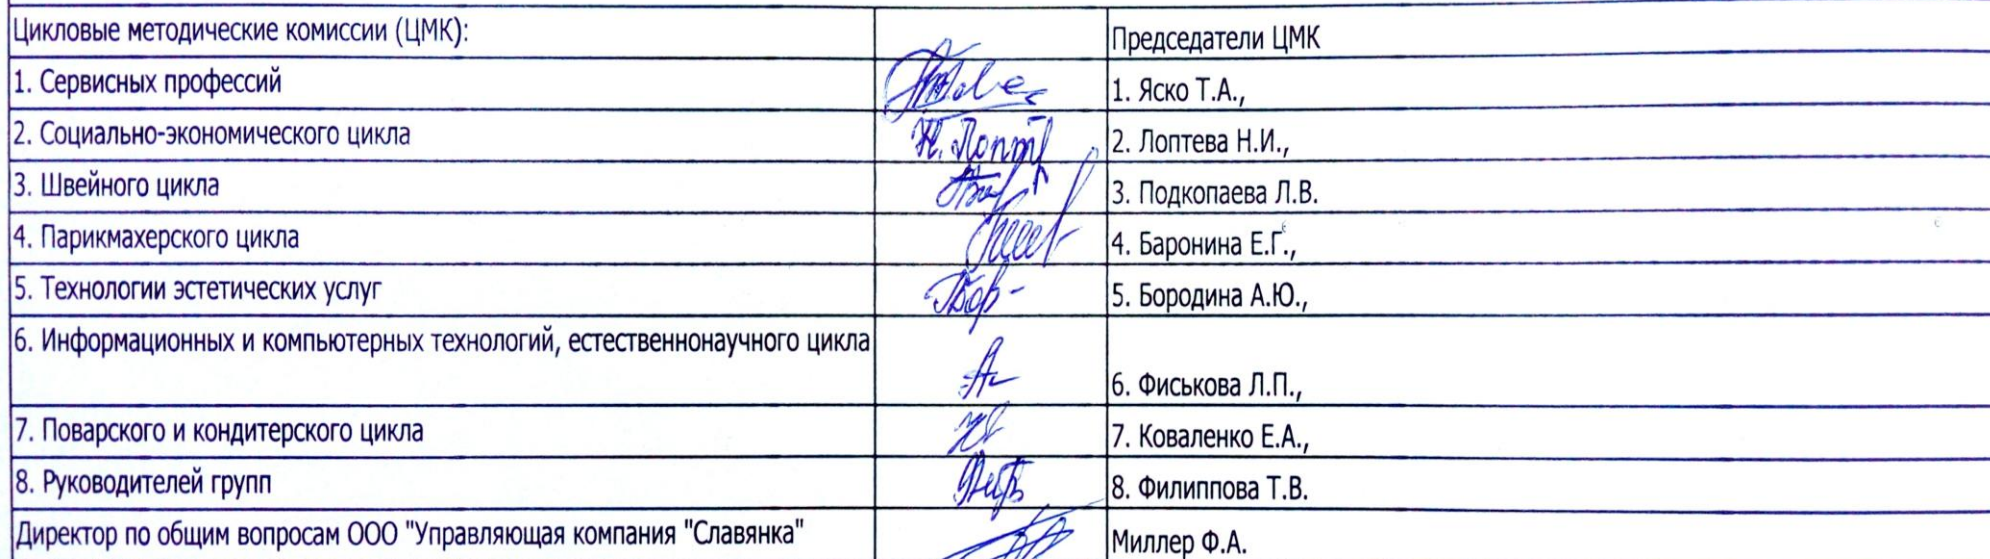 Цикловые методические комиссии (ЦМК): Председатели ЦМК
1. Сервисных профессий 1. Яско Т.А.,
2. Социально-экономического цикла Н. Лопт 2. Лоптева Н.И.,
3. Швейного цикла 3. Подкопаева Л.В.
4. Парикмахерского цикла 4. Баронина Е.Г.,
5. Технологии эстетических услуг 5. Бородина А.Ю.,
6. Информационных и компьютерных технологий, естественнонаучного цикла
6. Фиськова Л.П.,
7. Поварского и кондитерского цикла 7. Коваленко Е.А.,
8. Руководителей групп 8. Филиппова Т.В.
Директор по общим вопросам ООО "Управляющая компания "Славянка" Миллер Ф.А.